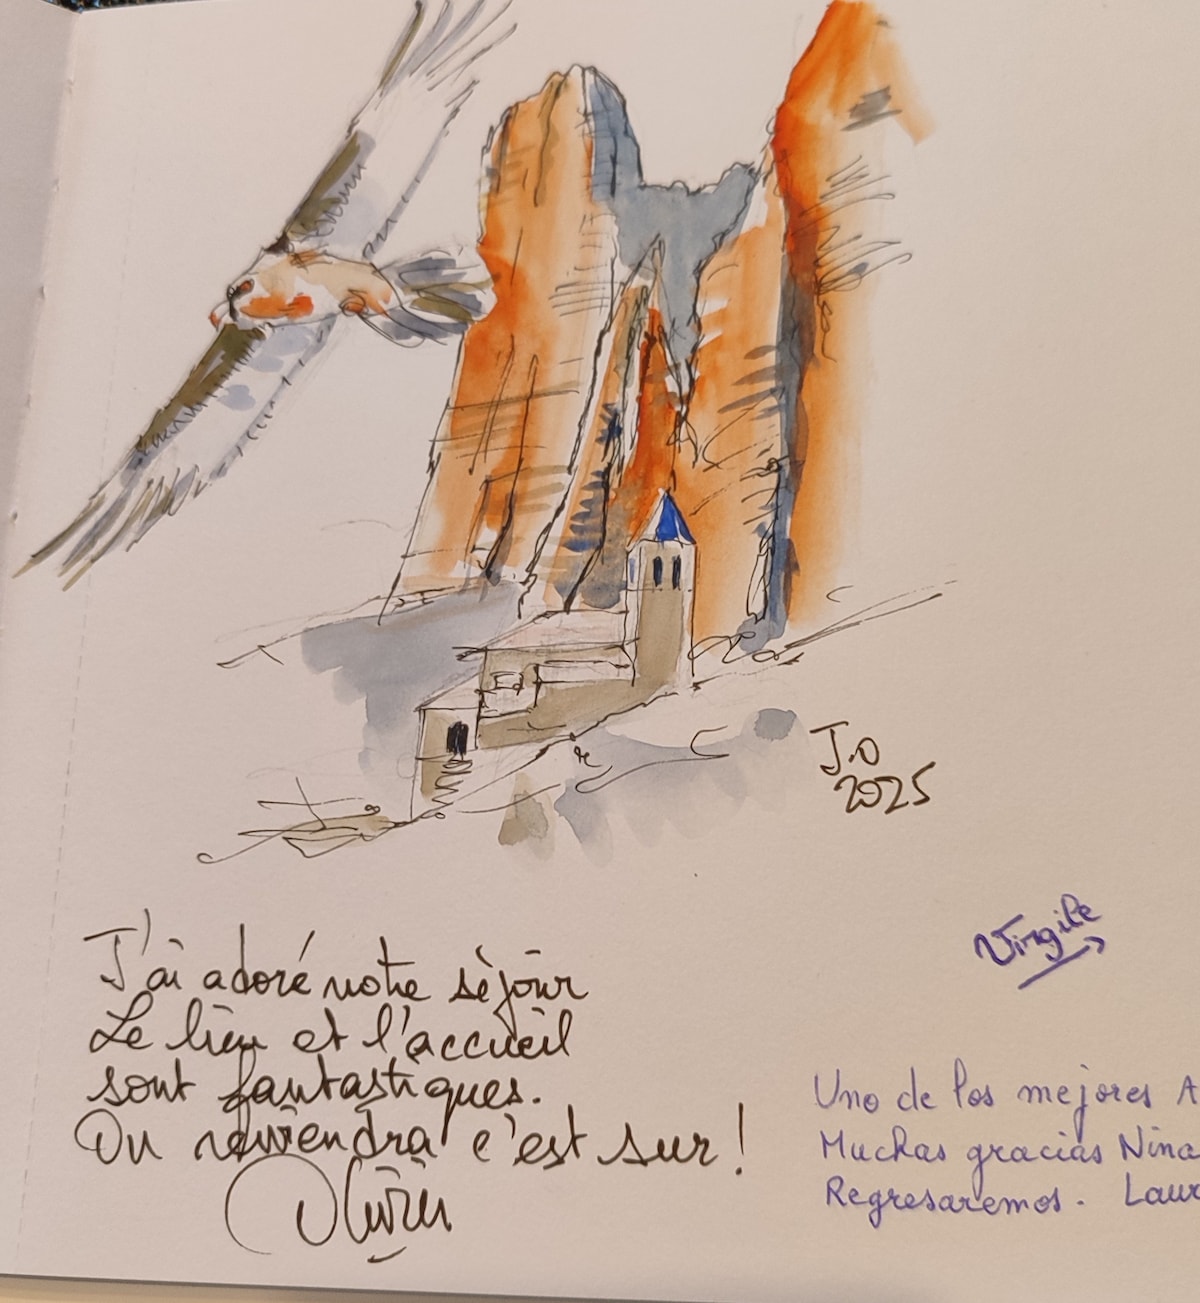 J.O
2025
Virgile
J'ai adoré notre séjour
Le lieu et l'accueil
sont fantastiques.
On reviendra c'est sur !
Olivier
Uno de los mejores A
Muchas gracias Nina
Regresaremos. Laur